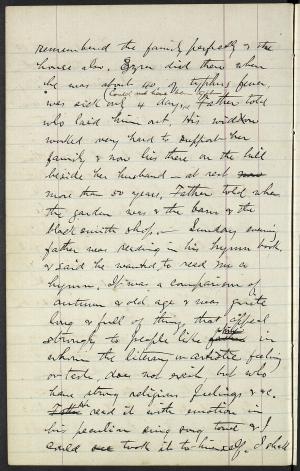 remembered the family perfectly & the
house also. Ezra died there when
he was about 40. typhus fever.
was sick only 4 days. Father told
who laid him out. His widow
worked very hard to support her
family & now lies there on the hill
beside her husband — at rest
more than 50 years. Father told where
the garden was & the barn & the
blacksmith shop. — Sunday evening
father was reading in his hymn book
& said he wanted to read me a
hymn. It was a comparison of
autumn & old age & was quite
long & full of things that appeal
strongly to people like in
whom the literary or artistic feeling
or taste, does not exist but who
have strong religious feelings & c.
He read it with emotion in
his peculiar sing song tone & I
could see took it to himself. I shall